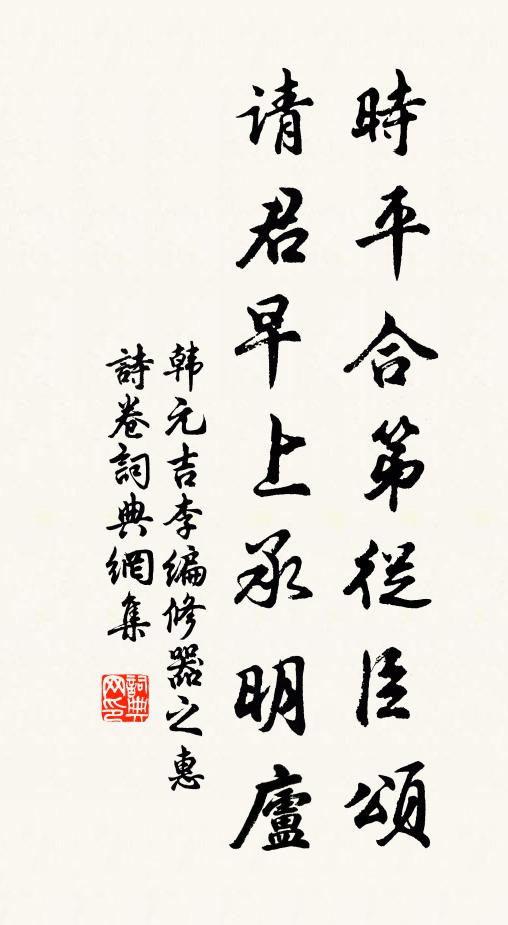 時平合第從臣頌
请君早上承明廬
韩元吉李编修器之惠
詩卷詞典網集
詞典网印